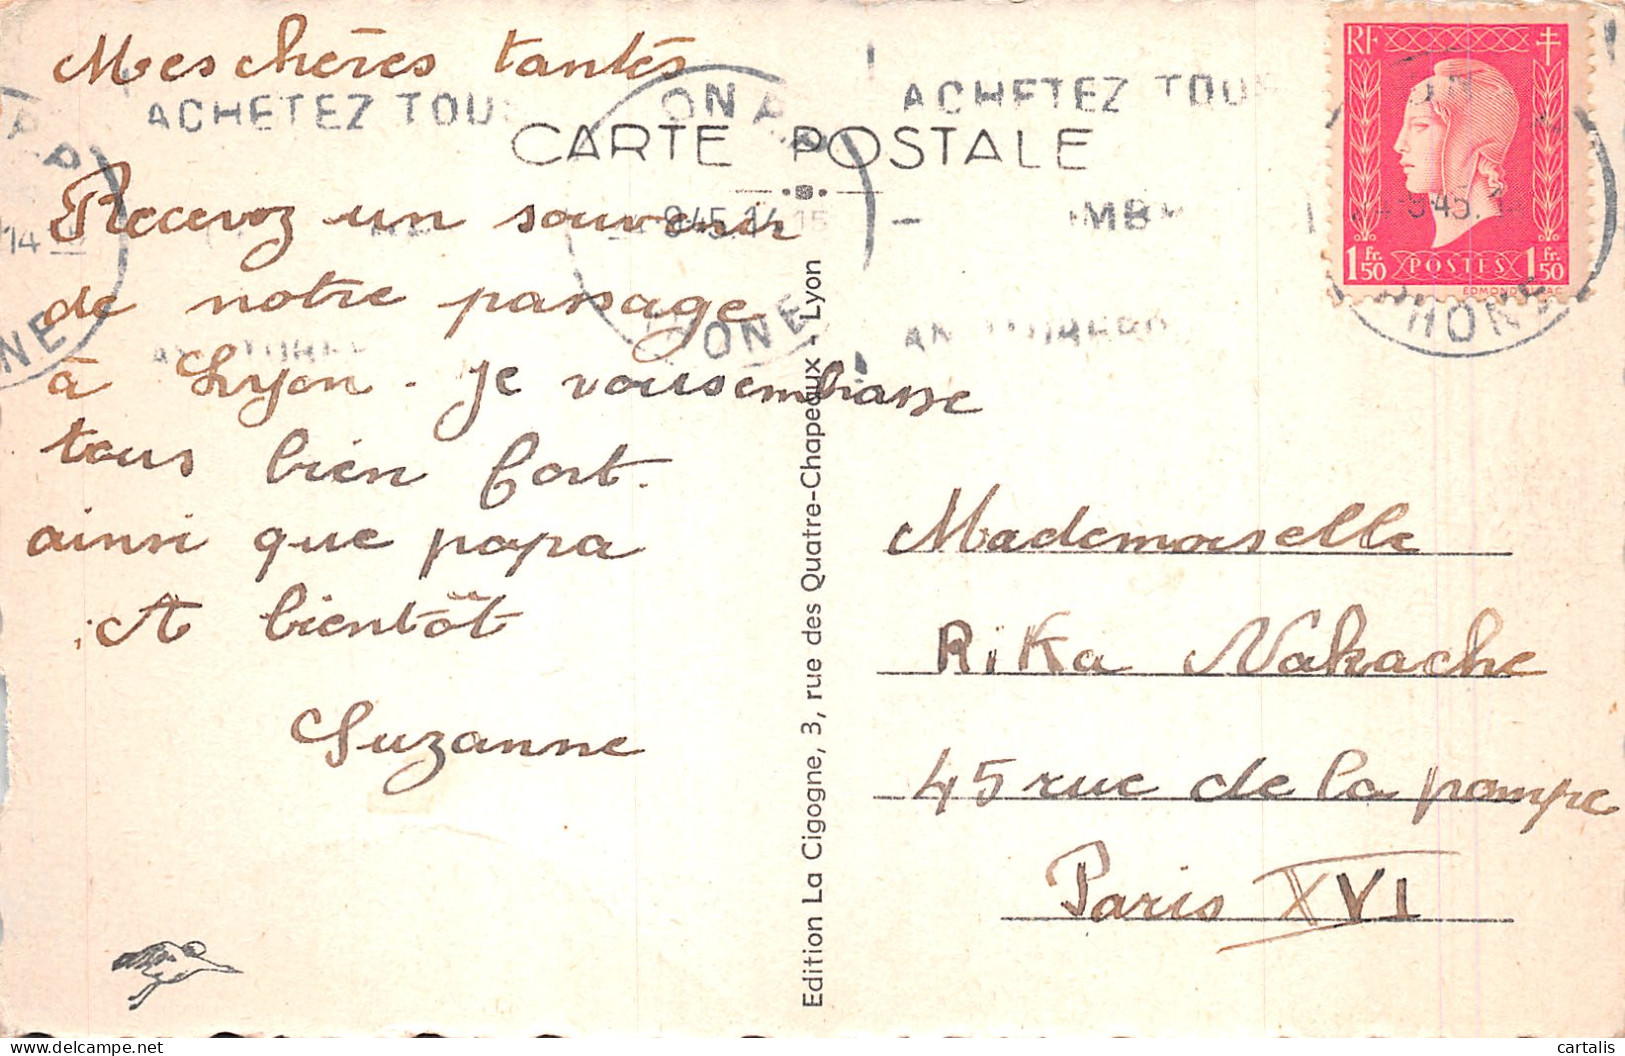 Mes chères tantes
ACHETEZ TOUS
ACHETEZ TOUS
CARTE POSTALE
Recevez un souvenir
de notre passage
à Lyon. Je vous embrasse
tous bien fort.
ainsi que papa
A bientôt
Suzanne
Edition La Cigogne, 3, rue des Quatre-Chapeaux - Lyon
RF
1 Fr. 50 POSTES 1 Fr. 50
RHONE
Mademoiselle
Rika Nakache
45 rue de la pompe
Paris XVI
cartalis